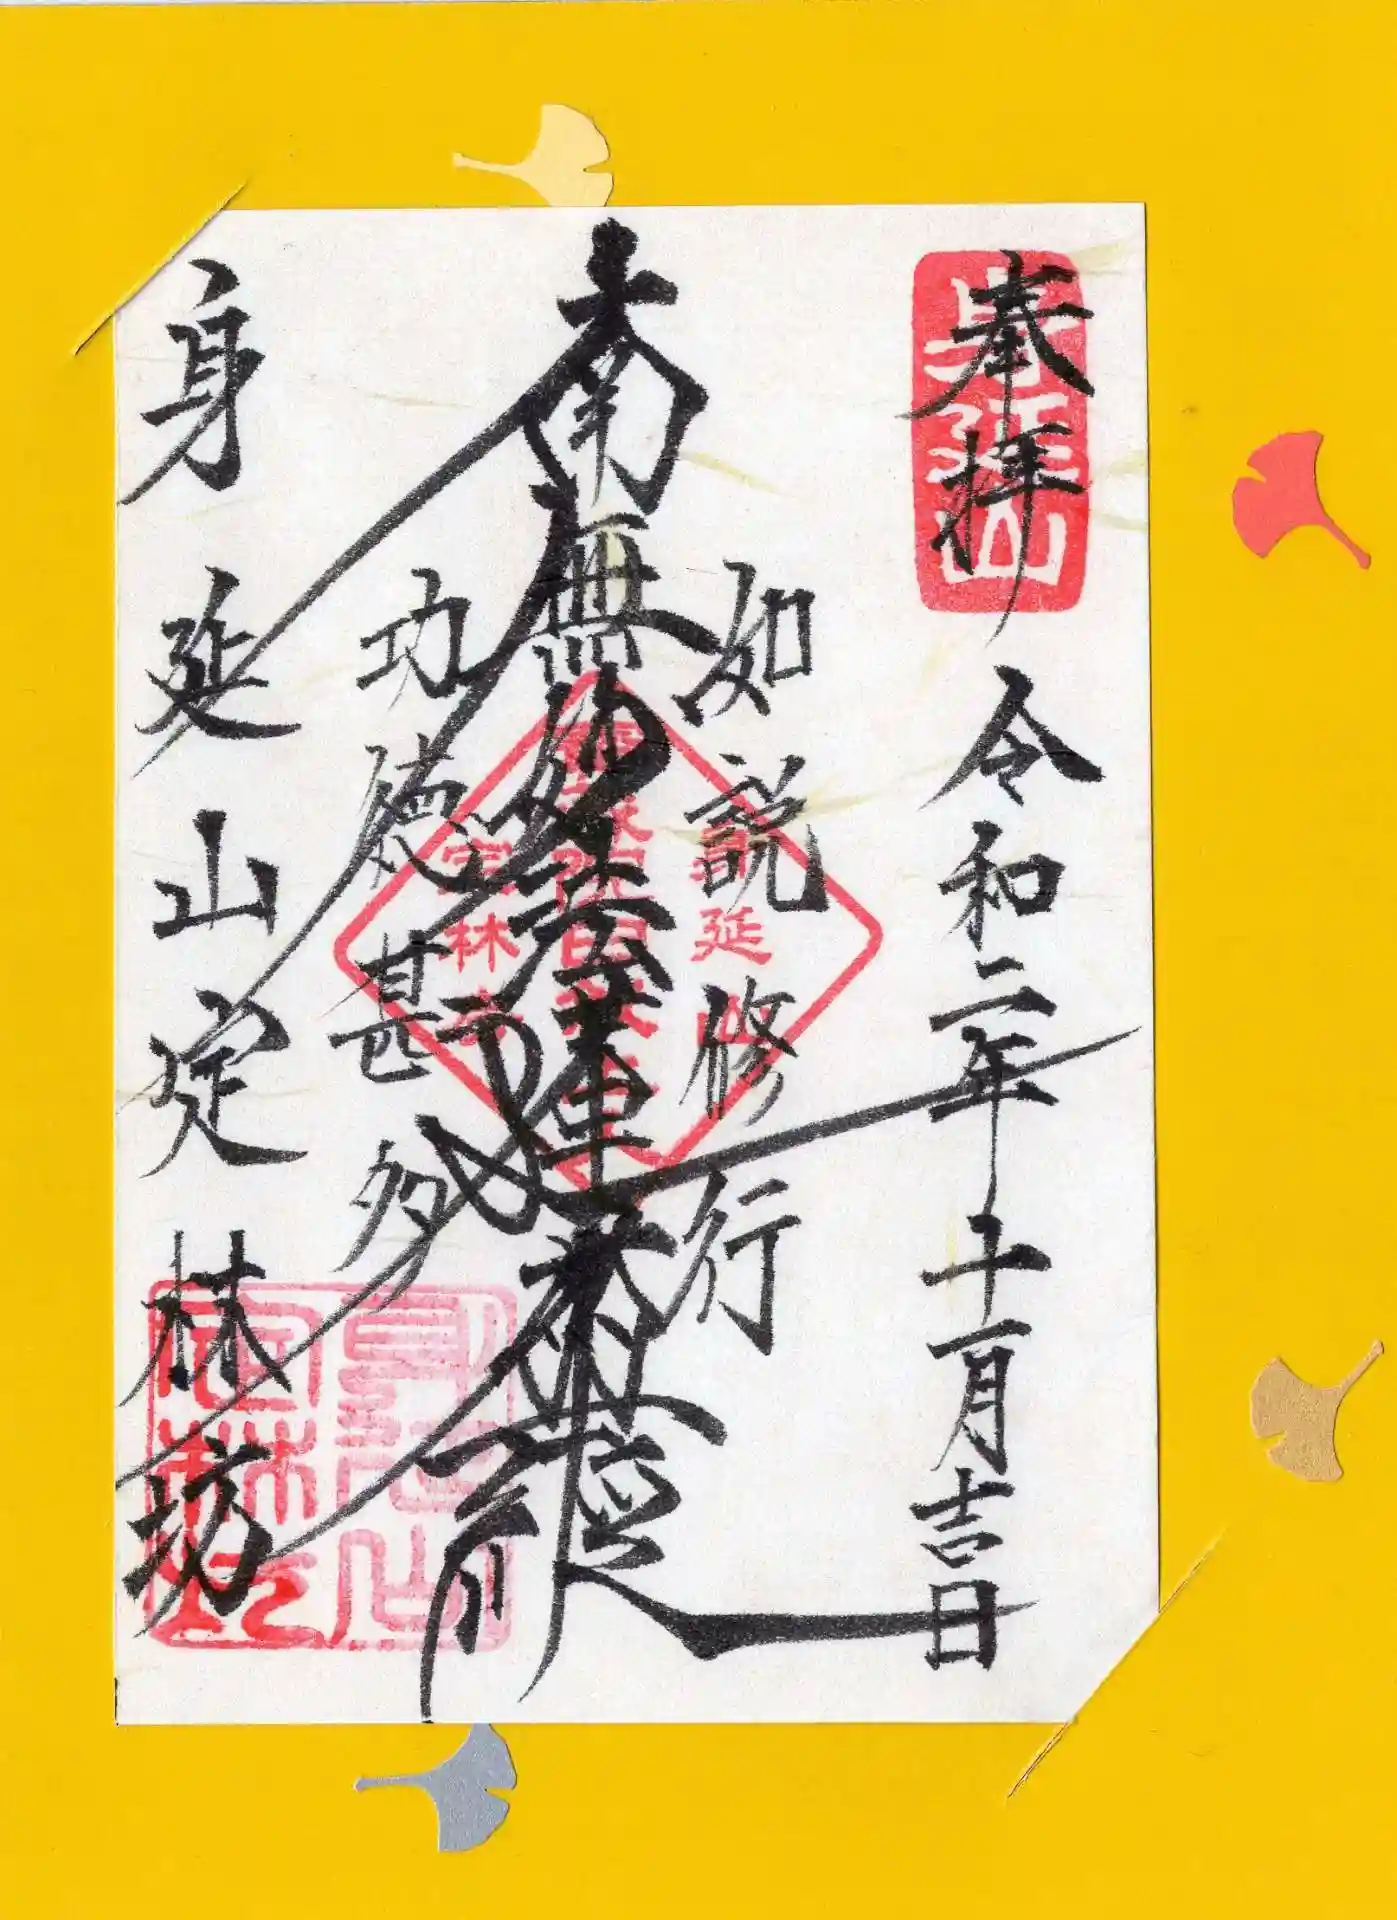 奉拝
身延山
令和二年十一月吉日
如説修行
南無妙法蓮華経
功徳甚多
身延山定林坊
身延山
定林坊